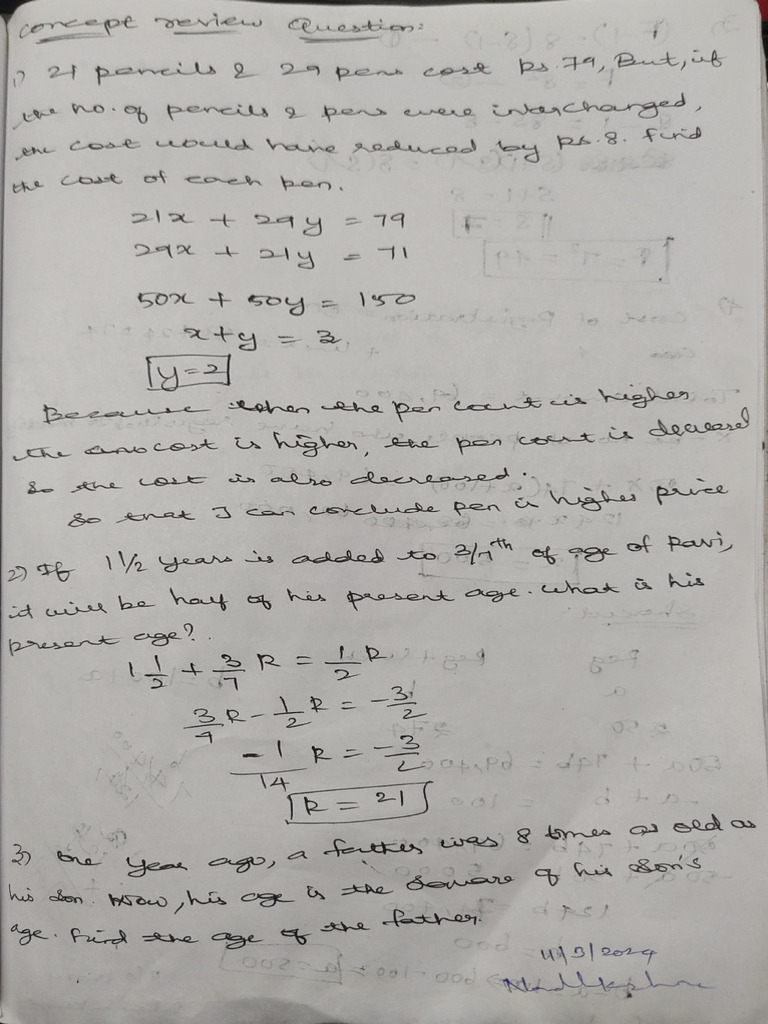 concept review Question:
1) 21 pencils & 29 pens cost Rs. 79, But, if
the no. of pencils & pens were interchanged,
the cost would have reduced by Rs. 8. find
the cost of each pen.
21x + 29y = 79
29x + 21y = 71
50x + 50y = 150
x + y = 3
y = 2
Because when the pen count is higher
the cost is higher, the pen count is decreased
so the cost is also decreased.
So that I can conclude pen is higher price
2) If 1 1/2 years is added to 3/7th of age of Ravi,
it will be half of his present age. What is his
present age?
1 1/2 + 3/7 R = 1/2 R
3/7 R - 1/2 R = -3/2
-1/14 R = -3/2
R = 21
3) One year ago, a father was 8 times as old as
his son. Now, his age is the square of his son's
age. Find the age of the father.